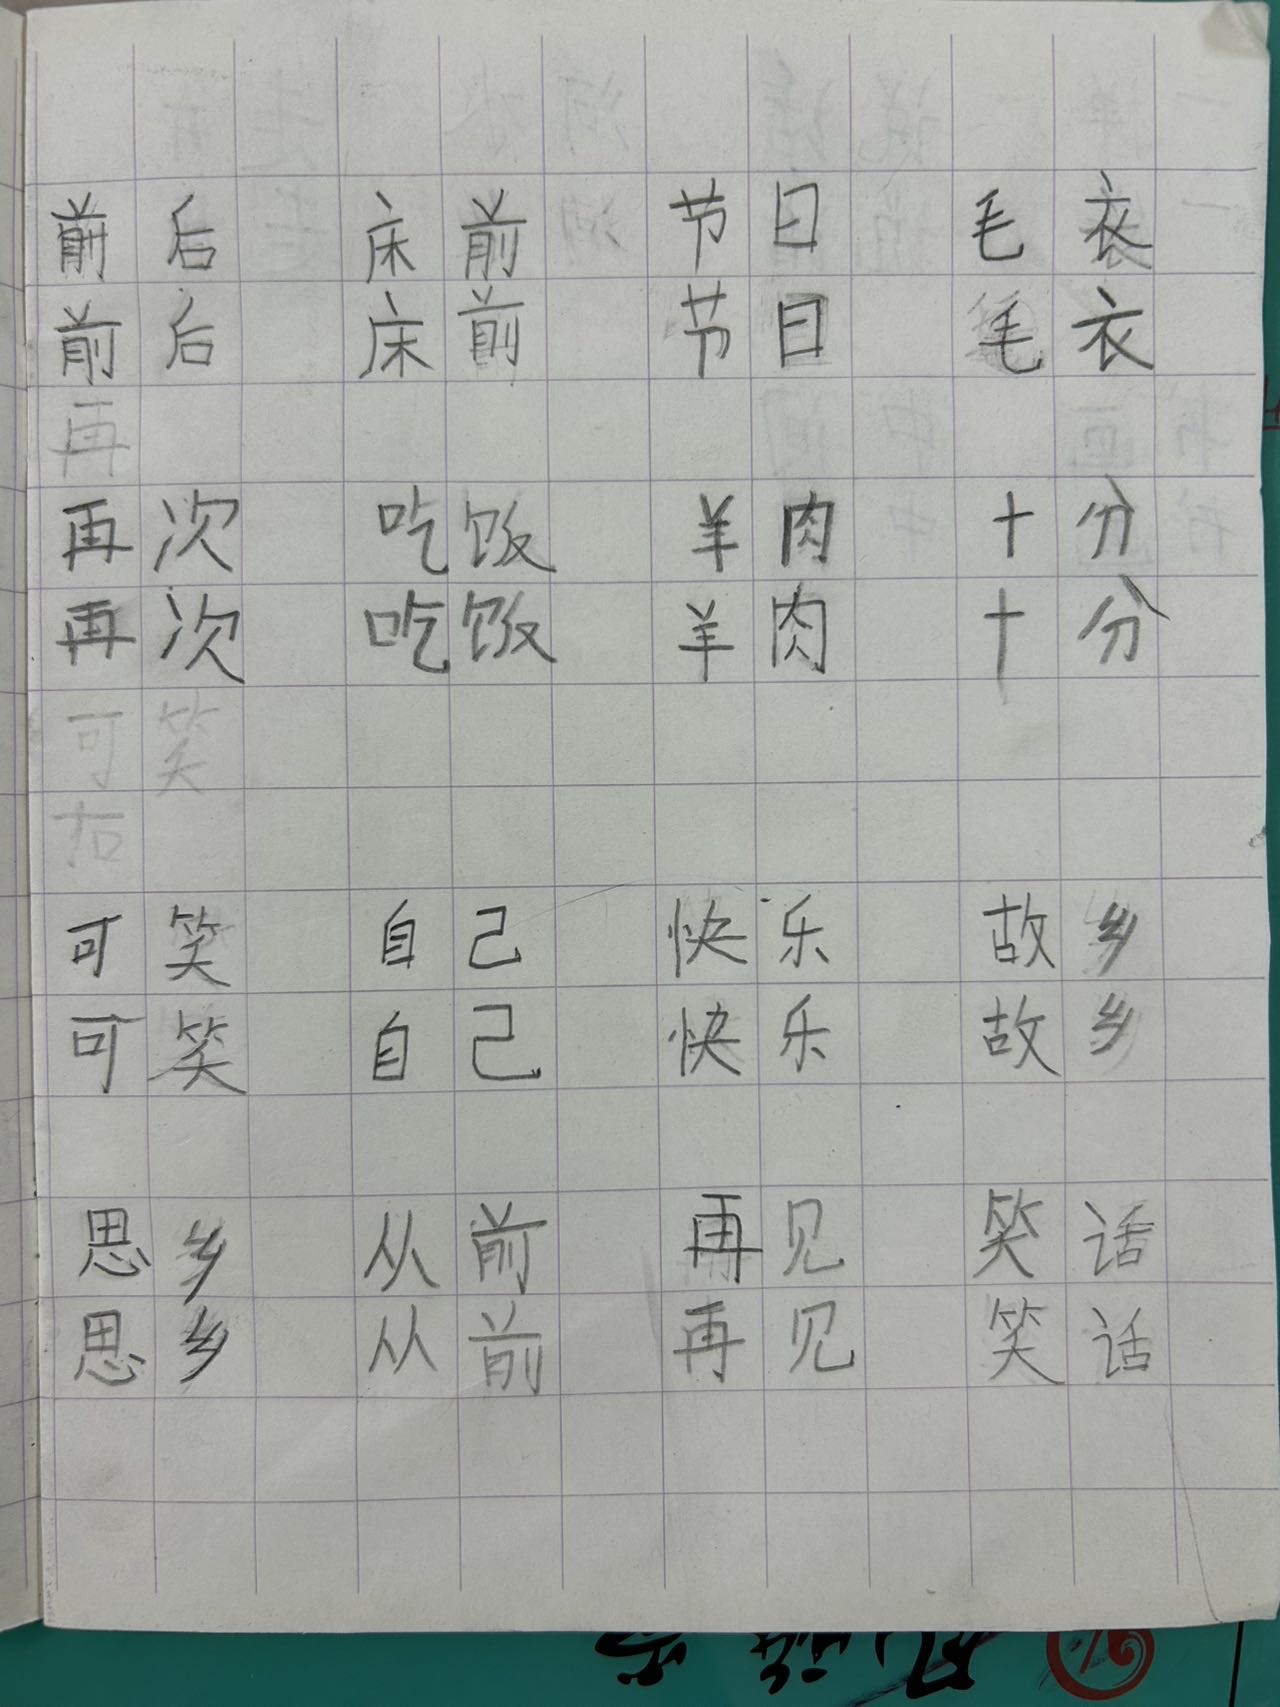 前后 床前 节日 毛衣
前后 床前 节日 毛衣
再
再次 吃饭 羊肉 十分
再次 吃饭 羊肉 十分
可笑
可笑 自己 快乐 故乡
可笑 自己 快乐 故乡
思乡 从前 再见 笑话
思乡 从前 再见 笑话